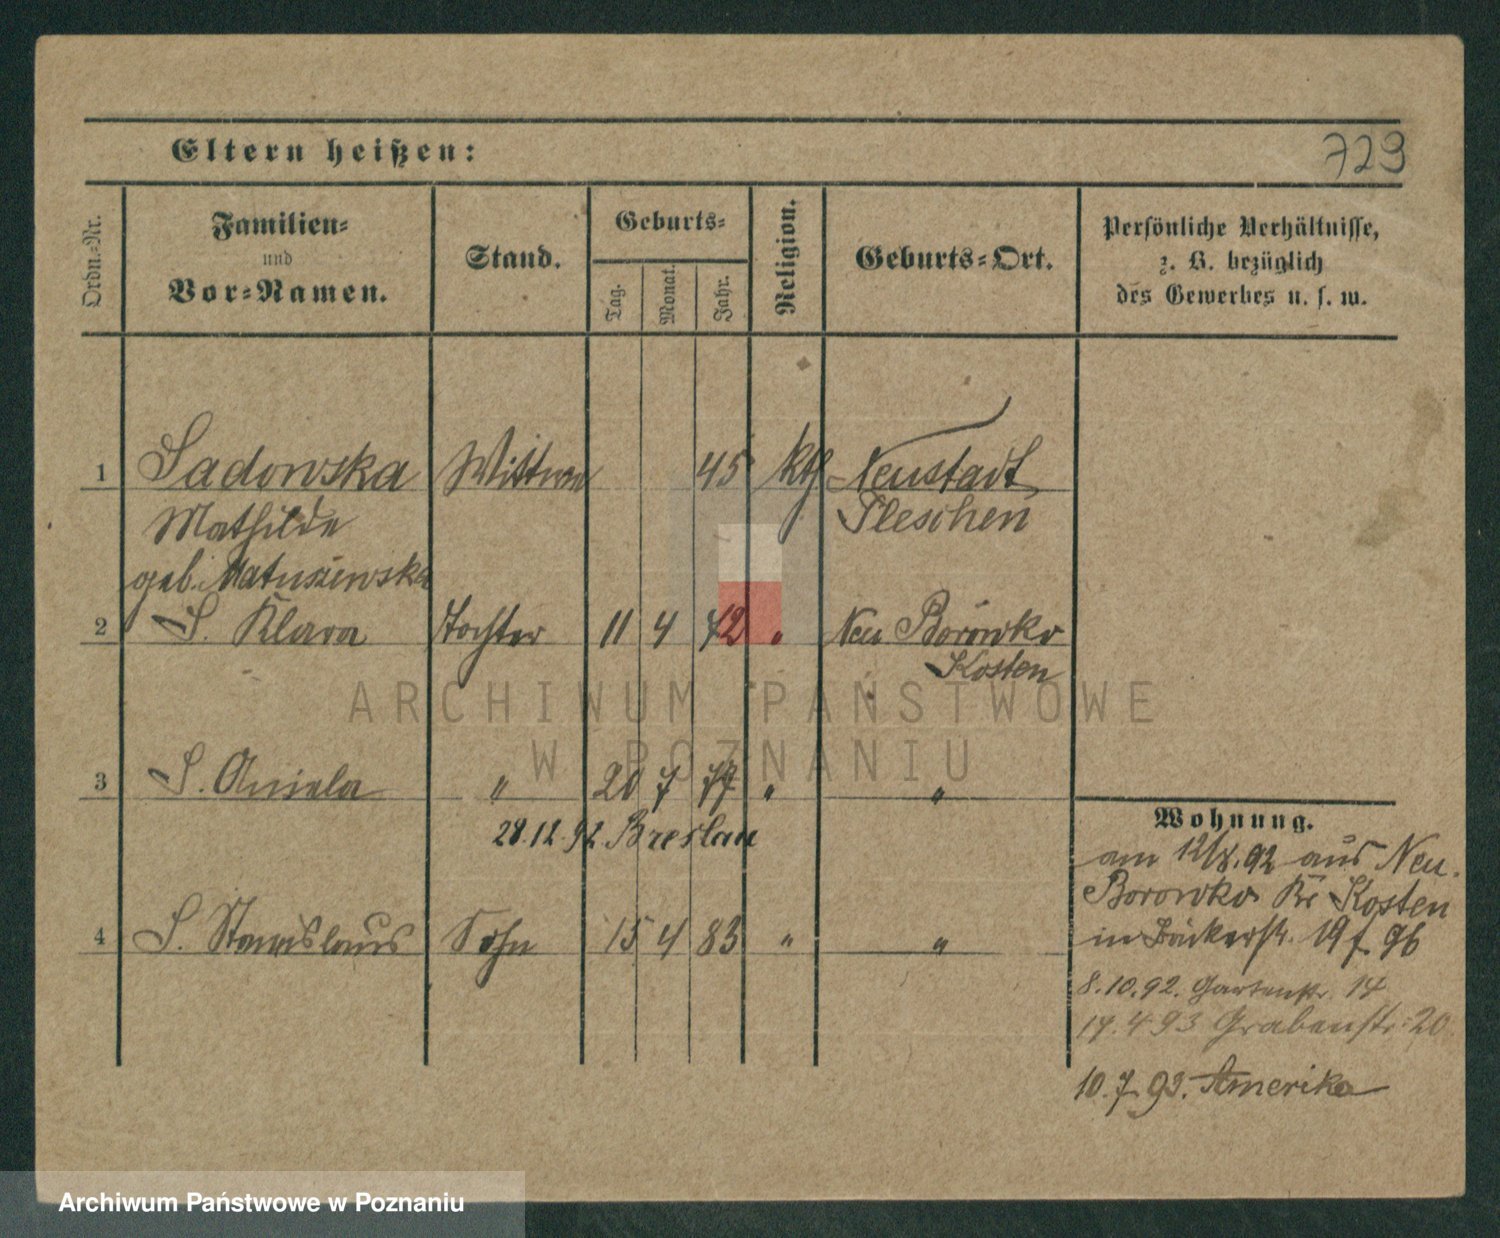 Eltern heißen:
729
Ordn.-Nr.
Familien-
und
Vor-Namen.
Stand.
Geburts-
Tag.
Monat.
Jahr.
Religion.
Geburts-Ort.
Persönliche Verhältnisse,
z. B. bezüglich
des Gewerbes u. s. w.
1 Sadowska Wittwe 45 kth Neustadt
Mathilde Pleschen
geb. Matuszewska
2 S. Klara Tochter 11 4 72 " Neu Borowko
Kosten
3 S. Aniela " 20 7 77 " "
28.12.92 Breslau
4 S. Stanislaus Sohn 15 4 83 " "
Wohnung.
am 12/8.92 aus Neu
Borowko Kr Kosten
in Bäckerstr. 19 f. 96
8.10.92. Gartenstr. 14
17.4 93 Grabenstr. 20
10.7.93. Amerika
ARCHIWUM PAŃSTWOWE
W POZNANIU
Archiwum Państwowe w Poznaniu